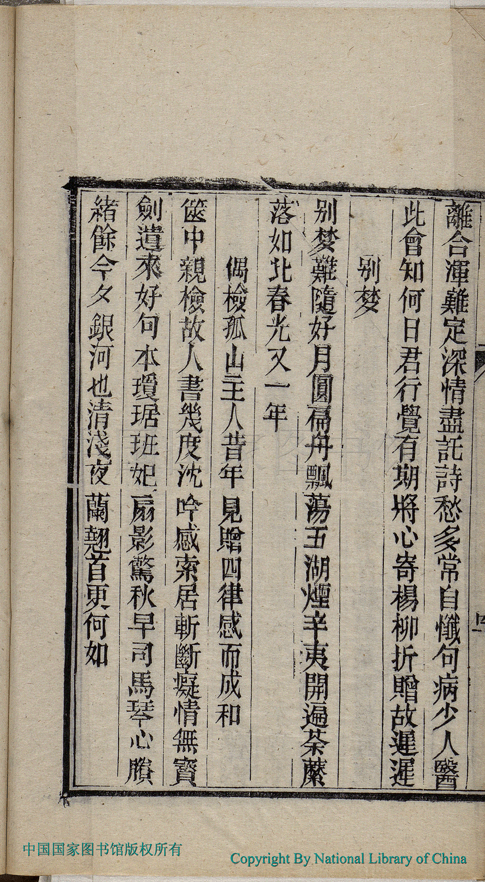 離合渾難定深情盡託詩愁多常自懺句病少人醫
此會知何日君行覺有期將心寄楊柳折贈故遲遲
別夢
別夢難隨好月圓扁舟飄蕩五湖煙辛夷開過荼䕷
落如此春光又一年
偶檢孤山主人昔年見贈四律感而成和
篋中親檢故人書幾度沈吟感索居斬斷癡情無寶
劍遺來好句本瓊琚班妃扇影驚秋早司馬琴心賸
緒餘今夕銀河也清淺夜蘭翹首更何如
四
中国国家图书馆版权所有
Copyright By National Library of China